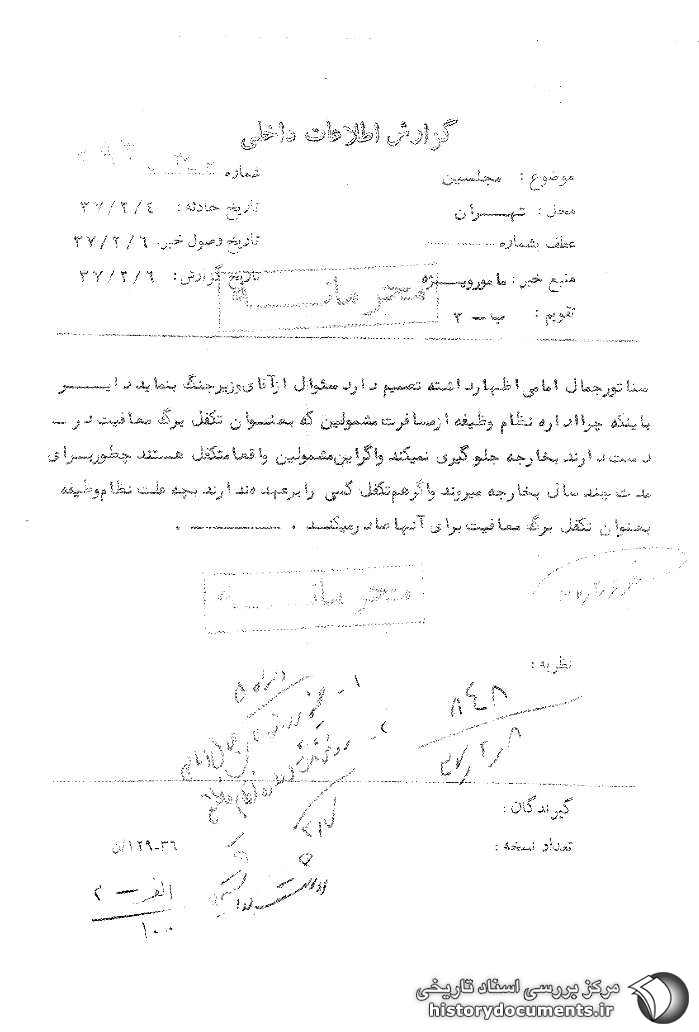 گزارش اطلاعات داخلی
موضوع : مجلسین
شماره
محل : تهران
تاریخ حادثه : ۳۷/۲/۴
عطف بشماره
تاریخ وصول خبر : ۳۷/۲/۶
منبع خبر : مامورویژه
تاریخ گزارش : ۳۷/۲/۶
محرمانه
تقویم : ب - ۲
سناتور جمال امامی اظهار داشته تصمیم دارد سئوال از آقای وزیر جنگ بنماید دایر
باینکه چرا اداره نظام وظیفه از مسافرت مشمولین که بعنوان تکفل برگ معافیت در -
دست دارند بخارجه جلوگیری نمیکند واگر این مشمولین واقعا متکفل هستند چطور برای
مدت چند سال بخارجه میروند واگر هم تکفل کسی را بر عهده ندارند بچه علت نظام وظیفه
بعنوان تکفل برگ معافیت برای آنها صادر میکند .
محرمانه
نظریه :
۸۴۸
۳۷/۲/۸
گیرندگان :
تعداد نسخه :
۱۲۹-۳۶/ن
الف - ۲
۱۰۰
مرکز بررسی اسناد تاریخی
historydocuments.ir